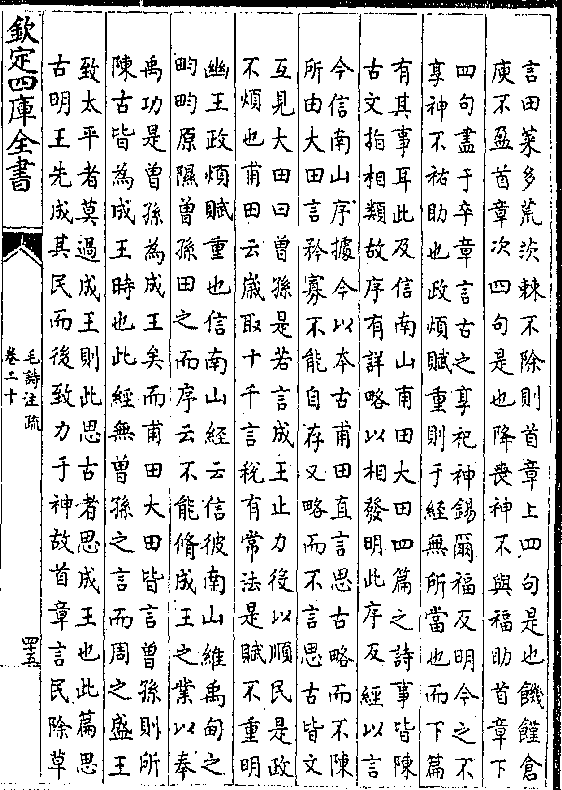 言田萊多荒茨棘不除則首章上四句是也饑饉倉
庾不盈首章次四句是也降喪神不與福助首章下
四句盡于卒章言古之享祀神錫爾福反明今之不
享神不祐助也政煩賦重則于經無所當也而下篇
有其事耳此及信南山甫田大田四篇之詩事皆陳
古文指相類故序有詳略以相發明此序反經以言
今信南山序據今以本古甫田直言思古略而不陳
所由大田言矜寡不能自存又略而不言思古皆文
互見大田曰曾孫是若言成王止力役以順民是政
不煩也甫田云歲取十千言稅有常法是賦不重明
幽王政煩賦重也信南山經云信彼南山維禹甸之
畇畇原隰曾孫田之而序云不能脩成王之業以奉
禹功是曾孫為成王矣而甫田大田皆言曾孫則所
陳古皆為成王時也此經無曾孫之言而周之盛王
致太平者莫過成王則此思古者思成王也此篇思
古明王先成其民而後致力于神故首章言民除草
欽定四庫全書
毛詩注疏
卷二十
四五